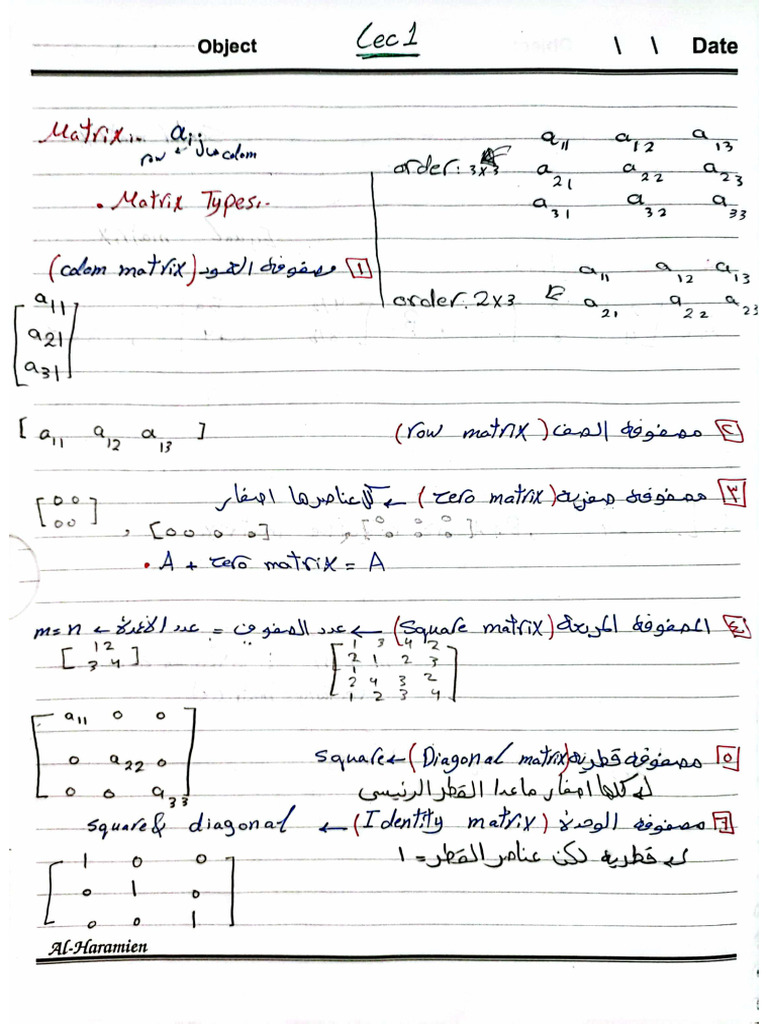 Object Lec 1 \ \ Date
Matrix:- aij
row colom
• Matrix Types:-
order: 3x3
a11 a12 a13
a21 a22 a23
a31 a32 a33
order: 2x3
a11 a12 a13
a21 a22 a23
١ مصفوفة العمود (colom matrix)
[a11
a21
a31]
٢ مصفوفة الصف (row matrix)
[a11 a12 a13]
٣ مصفوفة صفرية (zero matrix) ← كل عناصرها اصفار
[0 0
0 0] , [0 0 0 0] , [0 0 0
0 0 0]
• A + zero matrix = A
٤ المصفوفة المربعة (square matrix) ← عدد الصفوف = عدد الأعمدة ← m=n
[1 2
3 4]
[1 3 4 2
2 1 2 3
2 4 3 2
1 2 3 4]
٥ مصفوفة قطرية (Diagonal matrix) ← square
كلها اصفار ماعدا القطر الرئيسى
[a11 0 0
0 a22 0
0 0 a33]
٦ مصفوفة الوحدة (Identity matrix) ← square & diagonal
قطرية لكن عناصر القطر = ١
[1 0 0
0 1 0
0 0 1]
Al-Haramien